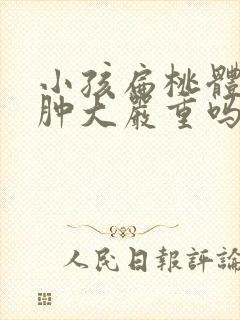 小孩扁桃體
肿大嚴重吗
人民日報評論